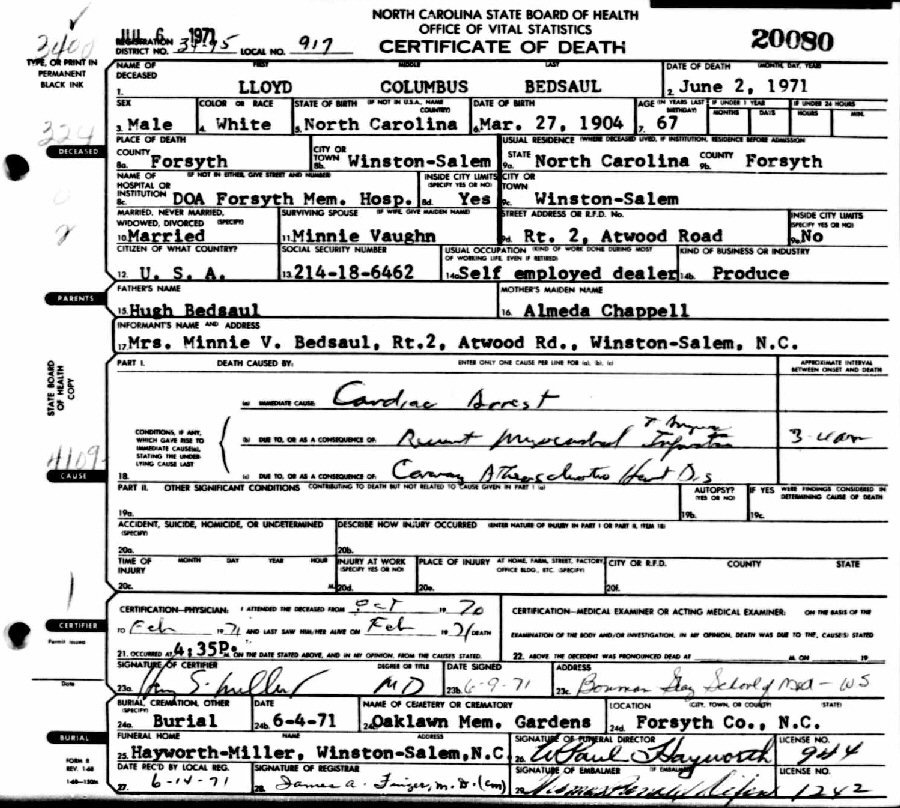 NORTH CAROLINA STATE BOARD OF HEALTH
OFFICE OF VITAL STATISTICS
CERTIFICATE OF DEATH
20080
JUL 6 1971
REGISTRATION DISTRICT NO. 34-95 LOCAL NO. 917
3400
TYPE, OR PRINT IN PERMANENT BLACK INK
NAME OF DECEASED FIRST MIDDLE LAST DATE OF DEATH (MONTH, DAY, YEAR)
1. LLOYD COLUMBUS BEDSAUL 2. June 2, 1971
SEX COLOR OR RACE STATE OF BIRTH (IF NOT IN U.S.A., NAME COUNTRY) DATE OF BIRTH AGE (IN YEARS LAST BIRTHDAY) IF UNDER 1 YEAR MONTHS DAYS IF UNDER 24 HOURS HOURS MIN.
3. Male 4. White 5. North Carolina 6. Mar. 27, 1904 7. 67
324
DECEASED
PLACE OF DEATH USUAL RESIDENCE (WHERE DECEASED LIVED, IF INSTITUTION, RESIDENCE BEFORE ADMISSION)
COUNTY 8a. Forsyth CITY OR TOWN 8b. Winston-Salem STATE 9a. North Carolina COUNTY 9b. Forsyth
NAME OF HOSPITAL OR INSTITUTION (IF NOT IN EITHER, GIVE STREET AND NUMBER) INSIDE CITY LIMITS (SPECIFY YES OR NO) CITY OR TOWN
8c. DOA Forsyth Mem. Hosp. 8d. Yes 9c. Winston-Salem
2
MARRIED, NEVER MARRIED, WIDOWED, DIVORCED (SPECIFY) SURVIVING SPOUSE (IF WIFE, GIVE MAIDEN NAME) STREET ADDRESS OR R.F.D. No. INSIDE CITY LIMITS (SPECIFY YES OR NO)
10. Married 11. Minnie Vaughn 9d. Rt. 2, Atwood Road 9e. No
CITIZEN OF WHAT COUNTRY? SOCIAL SECURITY NUMBER USUAL OCCUPATION (KIND OF WORK DONE DURING MOST OF WORKING LIFE, EVEN IF RETIRED) KIND OF BUSINESS OR INDUSTRY
12. U. S. A. 13. 214-18-6462 14a. Self employed dealer 14b. Produce
PARENTS
FATHER'S NAME MOTHER'S MAIDEN NAME
15. Hugh Bedsaul 16. Almeda Chappell
INFORMANT'S NAME AND ADDRESS
17. Mrs. Minnie V. Bedsaul, Rt.2, Atwood Rd., Winston-Salem, N.C.
STATE BOARD OF HEALTH COPY
PART I. DEATH CAUSED BY: ENTER ONLY ONE CAUSE PER LINE FOR (a), (b), (c) APPROXIMATE INTERVAL BETWEEN ONSET AND DEATH
(a) IMMEDIATE CAUSE Cardiac Arrest
CONDITIONS, IF ANY, WHICH GAVE RISE TO IMMEDIATE CAUSE(a), STATING THE UNDERLYING CAUSE LAST
(b) DUE TO, OR AS A CONSEQUENCE OF: Recent Myocardial Infarction
4109
CAUSE
18. (c) DUE TO, OR AS A CONSEQUENCE OF: Coronary Atherosclerotic Heart Dis
PART II. OTHER SIGNIFICANT CONDITIONS CONTRIBUTING TO DEATH BUT NOT RELATED TO CAUSE GIVEN IN PART I (a) AUTOPSY? (YES OR NO) IF YES WERE FINDINGS CONSIDERED IN DETERMINING CAUSE OF DEATH
19a. 19b. 19c.
ACCIDENT, SUICIDE, HOMICIDE, OR UNDETERMINED (SPECIFY) DESCRIBE HOW INJURY OCCURRED (ENTER NATURE OF INJURY IN PART I OR PART II, ITEM 18)
20a. 20b.
TIME OF INJURY MONTH DAY YEAR HOUR INJURY AT WORK (SPECIFY YES OR NO) PLACE OF INJURY AT HOME, FARM, STREET, FACTORY OFFICE BLDG., ETC. (SPECIFY) CITY OR R.F.D. COUNTY STATE
20c. M. 20d. 20e. 20f.
CERTIFIER
Permit issued
Date
CERTIFICATION—PHYSICIAN: I ATTENDED THE DECEASED FROM Oct 1970 CERTIFICATION—MEDICAL EXAMINER OR ACTING MEDICAL EXAMINER: ON THE BASIS OF THE
TO Feb 1971 AND LAST SAW HIM/HER ALIVE ON Feb 1971 DEATH EXAMINATION OF THE BODY AND/OR INVESTIGATION, IN MY OPINION, DEATH WAS DUE TO THE, CAUSE(S) STATED
21. OCCURRED AT 4:35P. M. ON THE DATE STATED ABOVE, AND IN MY OPINION, FROM THE CAUSES STATED 22. ABOVE THE DECEDENT WAS PRONOUNCED DEAD AT M. ON 19
SIGNATURE OF CERTIFIER DEGREE OR TITLE DATE SIGNED ADDRESS
23a. S. Miller MD 23b. 6-9-71 23c. Bowman Gray School of Med - WS
BURIAL, CREMATION, OTHER (SPECIFY) DATE NAME OF CEMETERY OR CREMATORY LOCATION (CITY, TOWN, OR COUNTY) (STATE)
24a. Burial 24b. 6-4-71 24c. Oaklawn Mem. Gardens 24d. Forsyth Co., N.C.
BURIAL
FUNERAL HOME NAME ADDRESS SIGNATURE OF FUNERAL DIRECTOR LICENSE NO.
25. Hayworth-Miller, Winston-Salem, N.C. 26. W Paul Hayworth 944
FORM 8
REV. 1-68
DATE REC'D BY LOCAL REG. SIGNATURE OF REGISTRAR SIGNATURE OF EMBALMER (IF EMBALMED) LICENSE NO.
27. 6-14-71 28. James A. M.D. 29. 1242